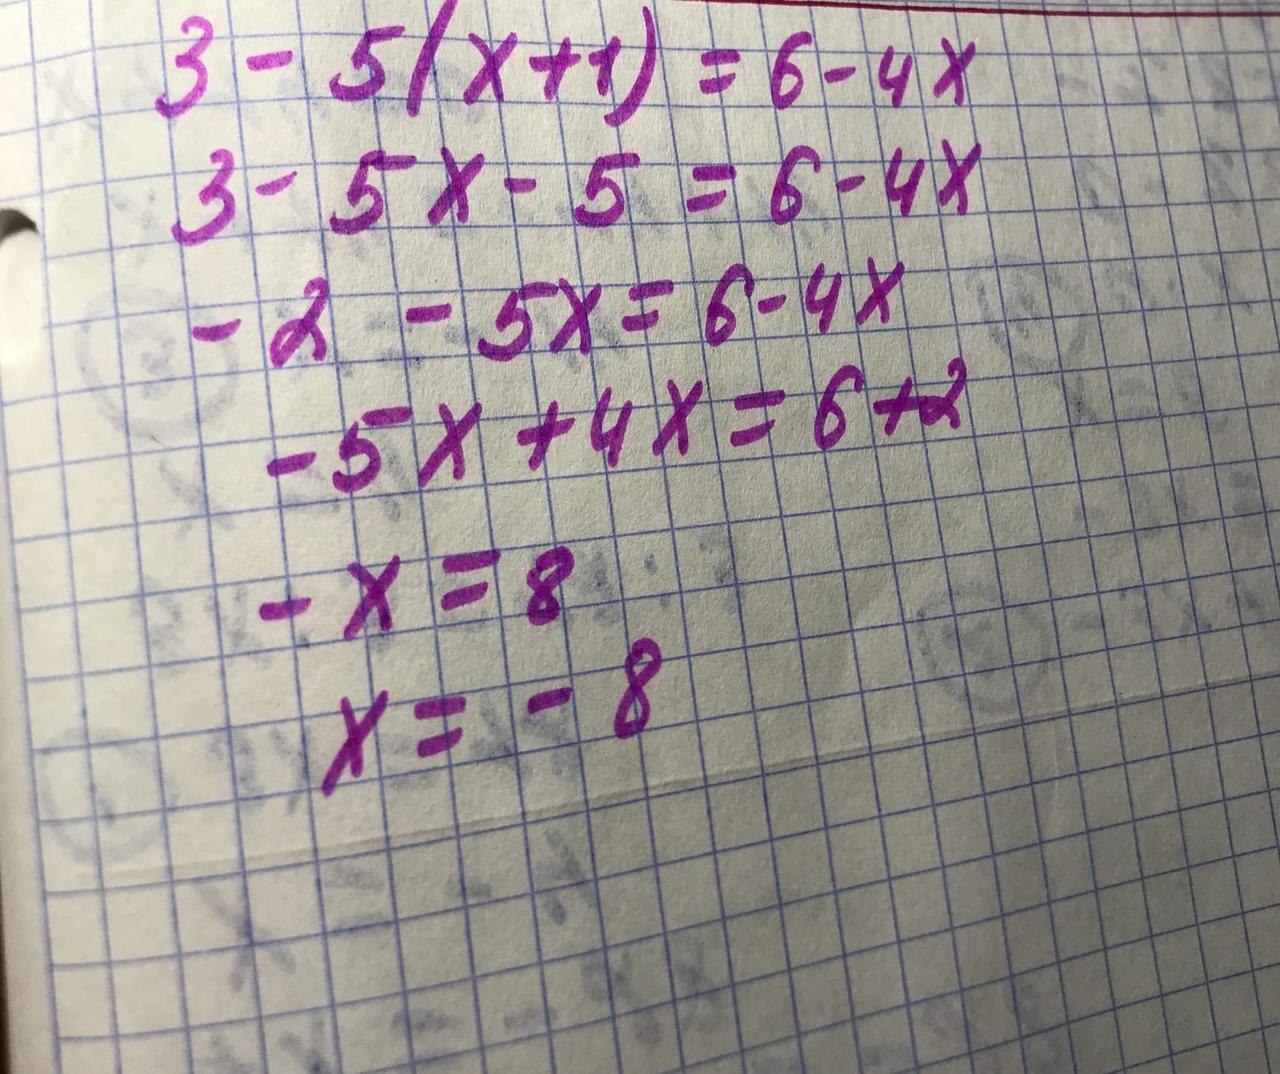 3 - 5(x+1) = 6-4x
3 - 5x - 5 = 6-4x
-2 - 5x = 6-4x
-5x + 4x = 6+2
-x = 8
x = -8